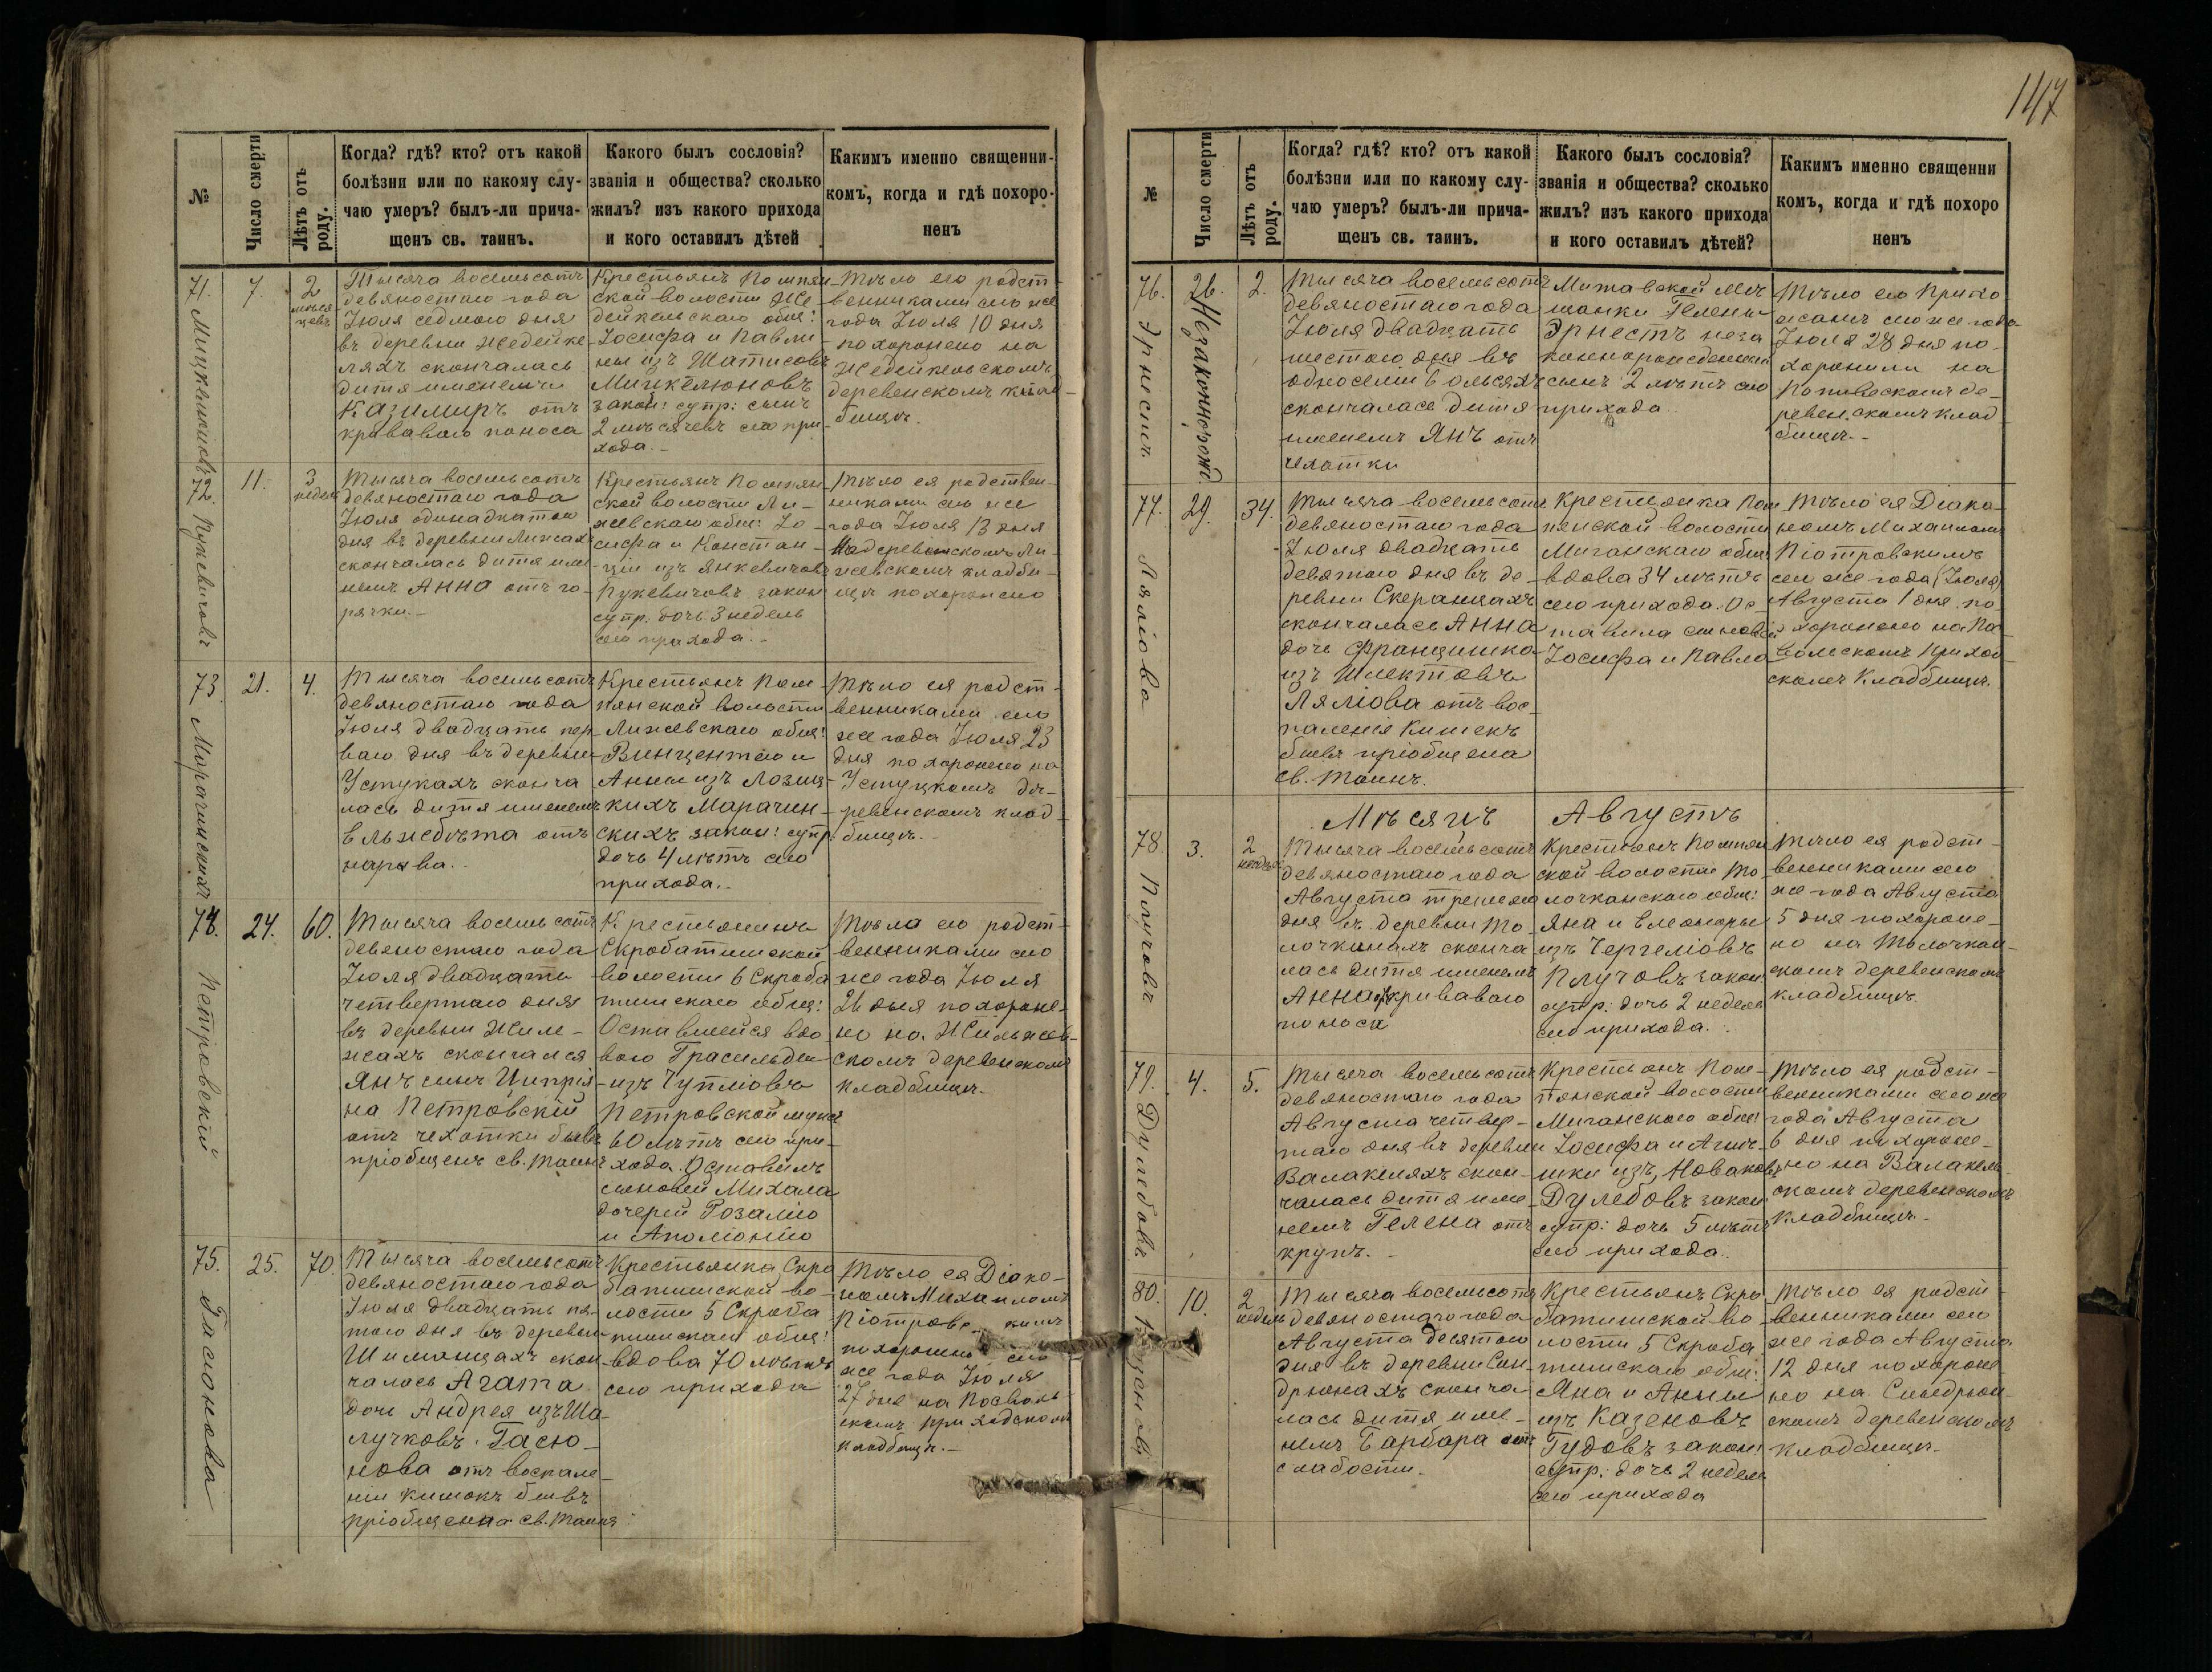 №
Число смерти
Лѣтъ отъ
роду.
Когда? гдѣ? кто? отъ какой
болѣзни или по какому слу-
чаю умеръ? былъ-ли прича-
щенъ св. таинъ.
Какого былъ сословія?
званія и общества? сколько
жилъ? изъ какого прихода
и кого оставилъ дѣтей
Какимъ именно священни-
комъ, когда и гдѣ похоро-
ненъ
71.
7.
2
мѣся
цевъ
Тысяча восемьсотъ
девяностаго года
Іюля седмого дня
въ деревни Жедейке
ляхъ скончалась
дитя именемъ
Казимиръ отъ
кроваваго поноса
Крестьянъ Помпян
ской волости Же-
дейкельскаго общ:
Іосифа и Павли-
ны изъ Шатисовъ
Мицкелюновъ
закон: супр: сынъ
2 мѣсячевъ сего при-
хода.-
Тѣло его родст-
венниками сего же
года Іюля 10 дня
похоронено на
Жедейкельскомъ
деревенскомъ клад-
бищѣ.
72.
Пукевичовъ
11.
3
недел
Тысяча восемьсотъ
девяностаго года
Іюля одинадцатого
дня въ деревни Лижах
скончалась дитя име-
немъ Анна отъ го-
рячки.-
Крестьянъ Помпян
ской волости Ли-
жевскаго общ: Іо-
сифа и Констан-
ціи изъ Янкевичовъ
Пукевичовъ закон
супр. дочь 3 недель
сего прихода.-
Тѣло ея родствен-
никами сего же
года Іюля 13 дня
на деревенскомъ Ли-
жевскомъ кладби-
щѣ похоронено
73
Марачинскихъ
21.
4.
Тысяча восемьсотъ
девяностаго года
Іюля двадцать пер-
ваго дня въ деревни
Устукахъ сконча
лась дитя именемъ
Ельжбѣта отъ
нарыва.
Крестьянъ Пом-
пянской волости
Лижевскаго общ:
Винцентаго и
Анны изъ Лозиц-
кихъ Марачин-
скихъ закон: супр:
дочь 4 лѣтъ сего
прихода.-
Тѣло ея родст-
венниками сего
же года Іюля 23
дня похоронено на
Устуцкомъ де-
ревенскомъ клад-
бищѣ.-
74.
Петровскій
24.
60.
Тысяча восемьсотъ
девяностаго года
Іюля двадцать
четвертаго дня
въ деревни Жиле-
жахъ скончался
Янъ сынъ Ципрія-
на Петровскій
отъ чехотки бывъ
пріобщенъ св. таинъ
Крестьянинъ
Скробатишской
волости 6 Скроба
тишскаго общ:
Оставшейся вдо
вою Грасильды
изъ Чупліовъ
Петровской мужъ
60 лѣтъ сего при-
хода. Оставилъ
сыновей Михала
дочерей Розалію
и Аполонію
Тѣла его родст-
венниками сего
же года Іюля
26 дня похороне-
но на Жильжев-
скомъ деревенскомъ
кладбищѣ.-
75.
Гасюнова
25.
70.
Тысяча восемьсотъ
девяностаго года
Іюля двадцать пя-
того дня въ деревни
Шимянцахъ скон
чалась Агата
дочь Андрея изъ Ша-
лучковъ Гасю-
нова отъ воспале-
ніи кишокъ бывъ
пріобщенна св. таинъ
Крестьянка Скро
батишской во-
лости 5 Скроба
тишскаго общ:
вдова 70 лѣтъ
сего прихода
Тѣло ея Діако-
номъ Михаиломъ
Піотровс кимъ
похоронено сего
же года Іюля
27 дня на Посволь
скомъ приходскомъ
кладбищѣ.-
147
№
Число смерти
Лѣтъ отъ
роду.
Когда? гдѣ? кто? отъ какой
болѣзни или по какому слу-
чаю умеръ? былъ-ли прича-
щенъ св. таинъ.
Какого былъ сословія?
званія и общества? сколько
жилъ? изъ какого прихода
и кого оставилъ дѣтей?
Какимъ именно священни
комъ, когда и гдѣ похоро
ненъ
76.
Эрнестъ
26.
Незаконнорожд
2.
Тысяча восемьсотъ
девяностаго года
Іюля двадцать
шестого дня въ
односеліи Ёльсяхъ
скончалась дитя
именемъ Янъ отъ
чехотки
Митавской мѣ
щанки Гелены
Эрнестъ неза
коннорожденный
сынъ 2 лѣтъ сего
прихода
Тѣло его прихо-
жанъ сего же года
Іюля 28 дня по-
хоронили на
де-
ревенскомъ клад
бищѣ.-
77.
Ляліова
29.
34.
Тысяча восемьсотъ
девяностаго года
Іюля двадцать
девятого дня въ де-
ревни Скеранцахъ
скончалась Анна
дочь Францишка
изъ Шлектовъ
Ляліова отъ вос-
паленія кишекъ
бывъ пріобщена
св. таинъ.
Крестьянка Пом
пянской волости
Миганскаго общ:
вдова 34 лѣтъ
сего прихода. Ос-
тавила сыновей
Іосифа и Павла
Тѣло ея Діако-
номъ Михаиломъ
Піотровскимъ
сего же года (Іюля)
Августа 1 дня по-
хоронено на По-
вольскомъ приход
скомъ кладбищѣ.
Мѣсяцъ Августъ
78.
3.
2
недел
Тысяча восемьсотъ
девяностаго года
Августа третьяго
дня въ деревни То-
лочкинахъ сконча
лась дитя именемъ
Анна отъ криваваго
поноса
Крестьянъ Помпян
ской волости То-
лочканскаго общ:
Яна и Елеоноры
изъ Чергеліовъ
Плучовъ закон:
супр: дочь 2 неделя
сего прихода.
Тѣло ея родст-
венниками сего
же года Августа
5 дня похороне-
но на Толочкан-
скомъ деревенскомъ
кладбищѣ.
79.
Дулебовъ
4.
5.
Тысяча восемьсотъ
девяностаго года
Августа четвер-
таго дня въ деревни
Валакеляхъ скон-
чалась дитя име-
немъ Гелена отъ
крупъ.-
Крестьянъ Пом-
пянской волости
Миганскаго общ:
Іосифа и Агнѣ-
шки изъ Новаковъ
Дулебовъ закон:
супр: дочь 5 лѣтъ
сего прихода.
Тѣло ея родст-
венниками сего же
года Августа
6 дня похороне-
но на Валакель-
скомъ деревенскомъ
кладбищѣ.-
80.
10.
2
недель
Тысяча восемьсотъ
девяностаго года
Августа десятого
дня въ деревни Сын-
дрюнахъ сконча
лась дитя име-
немъ Барбара отъ
слабости.
Крестьянъ Скро
батишской во-
лости 5 Скроба
тишскаго общ:
Яна и Анны
изъ Казеновъ
Гудовъ закон:
супр: дочь 2 неделя
сего прихода
Тѣло ея родст-
венниками сего
же года Августа
12 дня похороне
но на Сындрюн-
скомъ деревенскомъ
кладбищѣ-